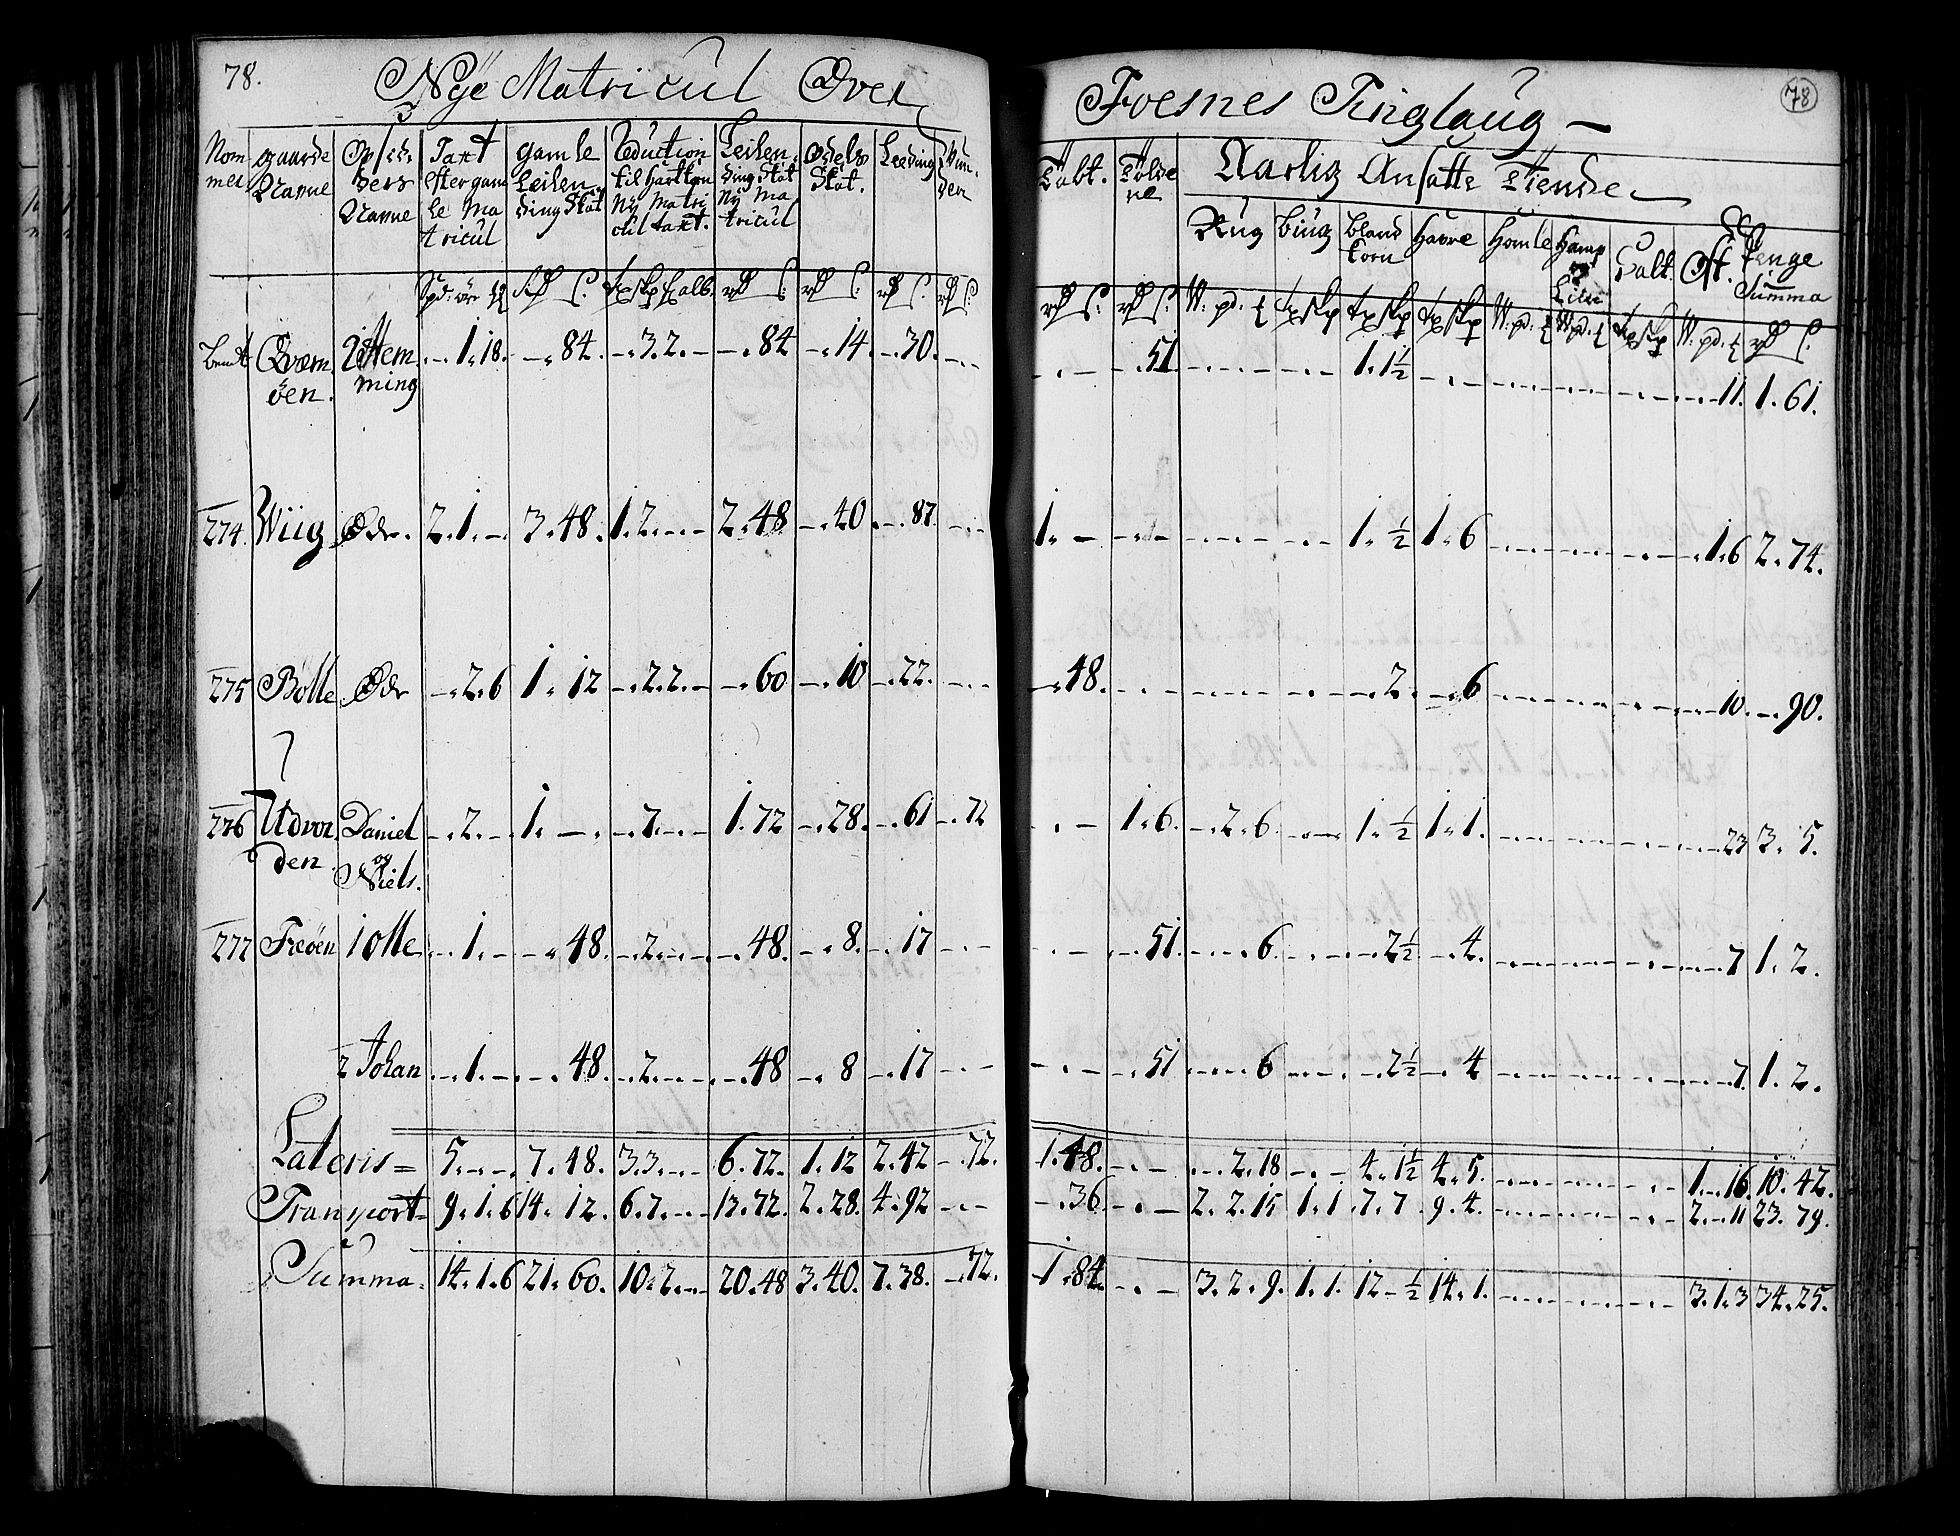 78. Nÿe Matricul Over Foesnes Tinglaug – 78
Nommer | gaarde Navne | Opsidders Navne | Taxt efter gamle Matricul | gamle Leilending Skat | Reduction til Hartkorn Ny Matricul taxt. | Leilending Skat Ny Matricul | Odels Skat. | Leeding | | | Tolde | Aarlig Ansatte Tiende
Rug | biug | bland korn | Havre | Homle | Hamp og Liin | Salt. | Ost. | Penge Summa
Qvemöen. | 2 Flemming | -. 1. 18. | -. 84. | -. 3. 2. - | -. 84 | -. 14. | -. 30. | -.- | -.- | -. 51 | -.- | -.- | 1. 1½ | -.- | -.- | -.- | -.- | 11. | 1. 61.
274. | Wiig | Ødr. | 2. 1. - | 3. 48. | 1. 2. -.- | 2. 48 | -. 40 | -. 87. | -.- | 1. - | -.- | -.- | -.- | 1. ½ | 1. 6 | -.- | -.- | -.- | 1. 6 | 2. 74.
275 | Bölle | Ødr | -. 2. 6 | 1. 12 | -. 2. 2. - | -. 60 | -. 10 | -. 22. | -.- | -. 48. | -.- | -.- | -.- | -. 2. | -. 6 | -.- | -.- | -.- | 10. | -. 90.
276 | Udvorden. | Daniel og Niels. | -. 2. - | 1. -. | -. 7. -.- | 1. 72 | -. 28. | -. 61 | -. 72 | -.- | 1. 6. | -. 2. 6. | -.- | 1. ½ | 1. 1. | -.- | -.- | -.- | 23 | 3. 5.
277 | Freöen | 1 Olle | -. 1. - | -. 48. | -. 2. -.- | -. 48. | -. 8. | -. 17 | -.- | -.- | -. 51. | -.-. 6. | -.- | -. 2½ | -. 4. | -.- | -.- | -.- | 7 | 1. 2.
2 Johan | -. 1. - | -. 48. | -. 2. -.- | -. 48 | -. 8 | -. 17 | -.- | -.- | -. 51 | -.-. 6 | -.- | -. 2½ | -. 4 | -.- | -.- | -.- | 7. | 1. 2.
Lateris = | 5. -.- | 7. 48. | 3. 3. -.- | 6. 72. | 1. 12 | 2. 42 | -. 72. | 1. 48. | -.- | -. 2. 18 | -.- | 4. 1½ | 4. 5. | -.- | -.- | -.- | 1. -. 16. | 10. 42.
Transport = | 9. 1. 6 | 14. 12. | 6. 7. -.- | 13. 72. | 2. 28. | 4. 92 | -.- | -. 36. | -.- | 2. 2. 15 | 1. 1 | 7. 7. | 9. 4. | -.- | -.- | -.- | 2. -. 11 | 23. 79.
Summa. | 14. 1. 6 | 21. 60. | 10. 2. -.- | 20. 48 | 3. 40. | 7. 38. | -. 72. | 1. 84. | -.- | 3. 2. 9. | 1. 1. | 12 - ½ | 14. 1. | -.- | -.- | -.- | 3. 1. 3 | 34. 25.